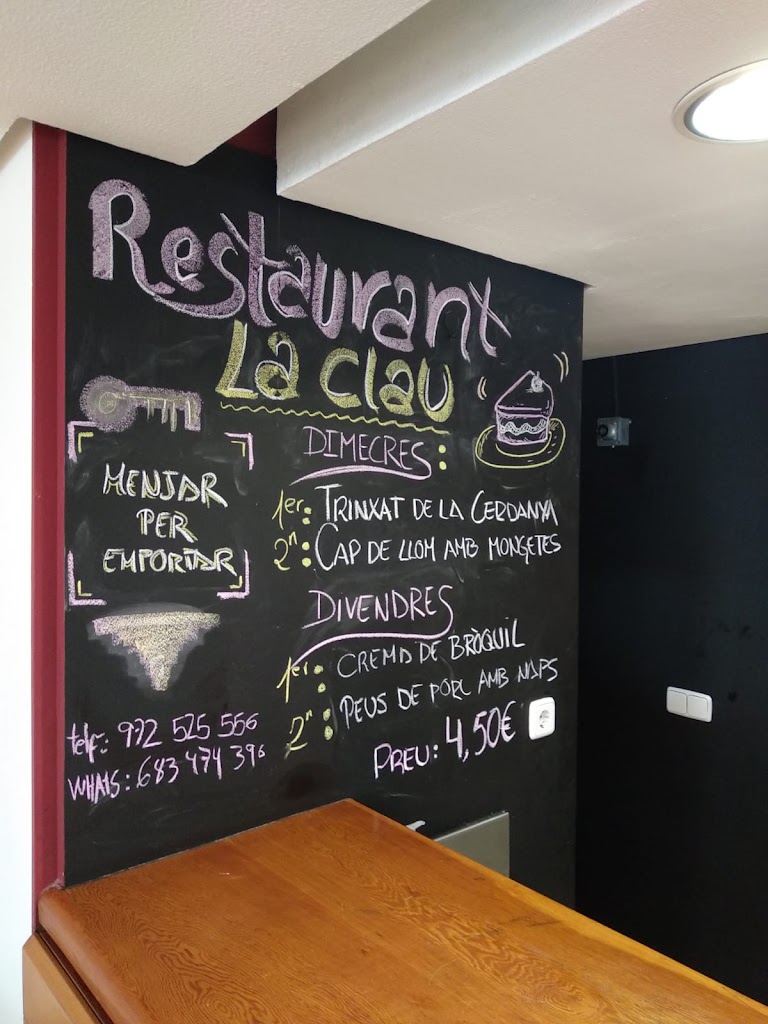 Restaurant
La Clau
MENJAR
PER
EMPORTAR
DIMECRES:
1er: TRINXAT DE LA CERDANYA
2n: CAP DE LLOM AMB MONGETES
DIVENDRES
1er: CREMA DE BRÒQUIL
2n: PEUS DE PORC AMB NAPS
PREU: 4,50€
telf.: 972 525 556
WHATS: 683 474 396